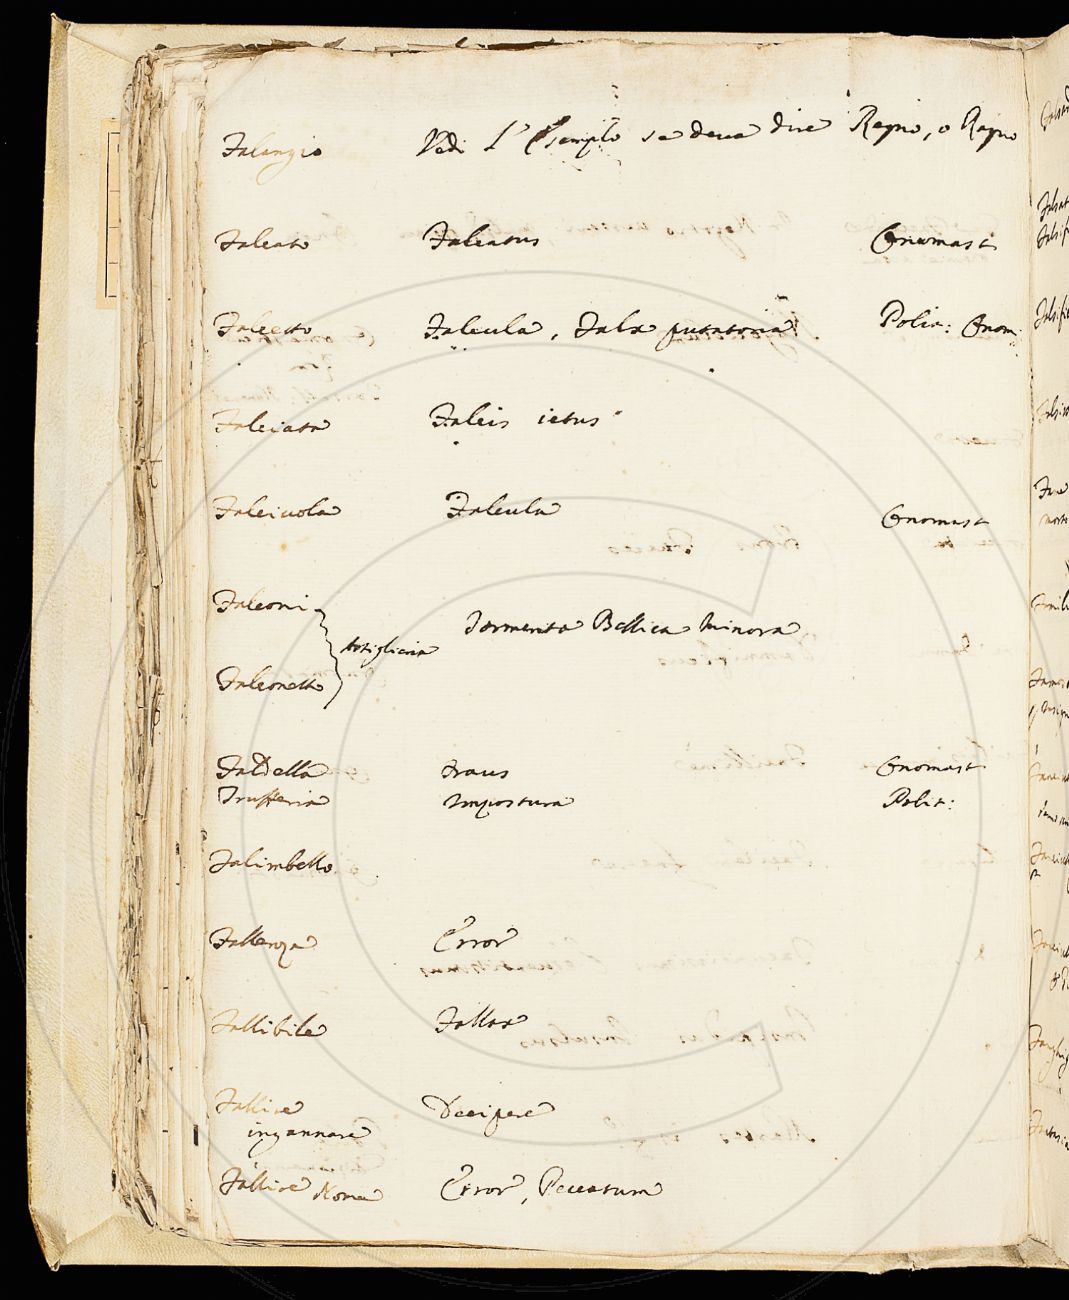 Falangio Vedi L'Esempio se deva dire Regno, o Ragno
Falcato Falcatus Onomast
Falcetto Falcula, Falx putatoria Polit: Onom:
Falciata Falcis ictus
Falciuola Falcula Onomast
Falconi
Artiglieria Tormenta Bellica Minora
Falconetto
Faldella Fraus Onomast
Trufferia Impostura Polit:
Falimbello
Fallenza Error
Fallibile Fallax
Fallire Decipere
ingannare
Fallire Nome Error, Peccatum